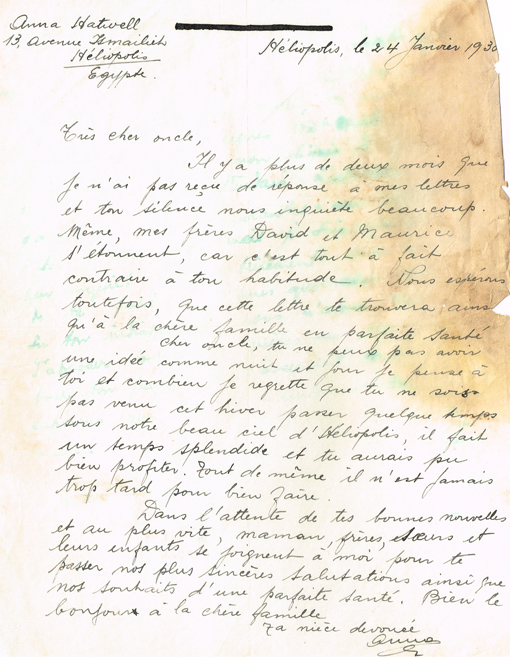 Anna Hatwell
13, Avenue Ismaïlieh
Héliopolis
Egypte.
Héliopolis, le 24 Janvier 1930
Très cher oncle,
Il y a plus de deux mois que
je n'ai pas reçu de réponse à mes lettres
et ton silence nous inquiète beaucoup.
Même, mes frères David et Maurice
s'étonnent, car c'est tout à fait
contraire à ton habitude. Nous espérons
toutefois, que cette lettre te trouvera ainsi
qu'à la chère famille en parfaite santé
Cher oncle, tu ne peux pas avoir
une idée comme nuit et jour je pense à
toi et combien je regrette que tu ne sois
pas venu cet hiver passer quelque temps
sous notre beau ciel d'Héliopolis, il fait
un temps splendide et tu aurais pu
bien profiter. Tout de même il n'est jamais
trop tard pour bien faire.
Dans l'attente de tes bonnes nouvelles
et au plus vite, maman, frères, sœurs et
leurs enfants se joignent à moi pour te
passer nos plus sincères salutations ainsi que
nos souhaits d'une parfaite santé. Bien le
bonjour à la chère famille
Ta nièce dévouée
Anna